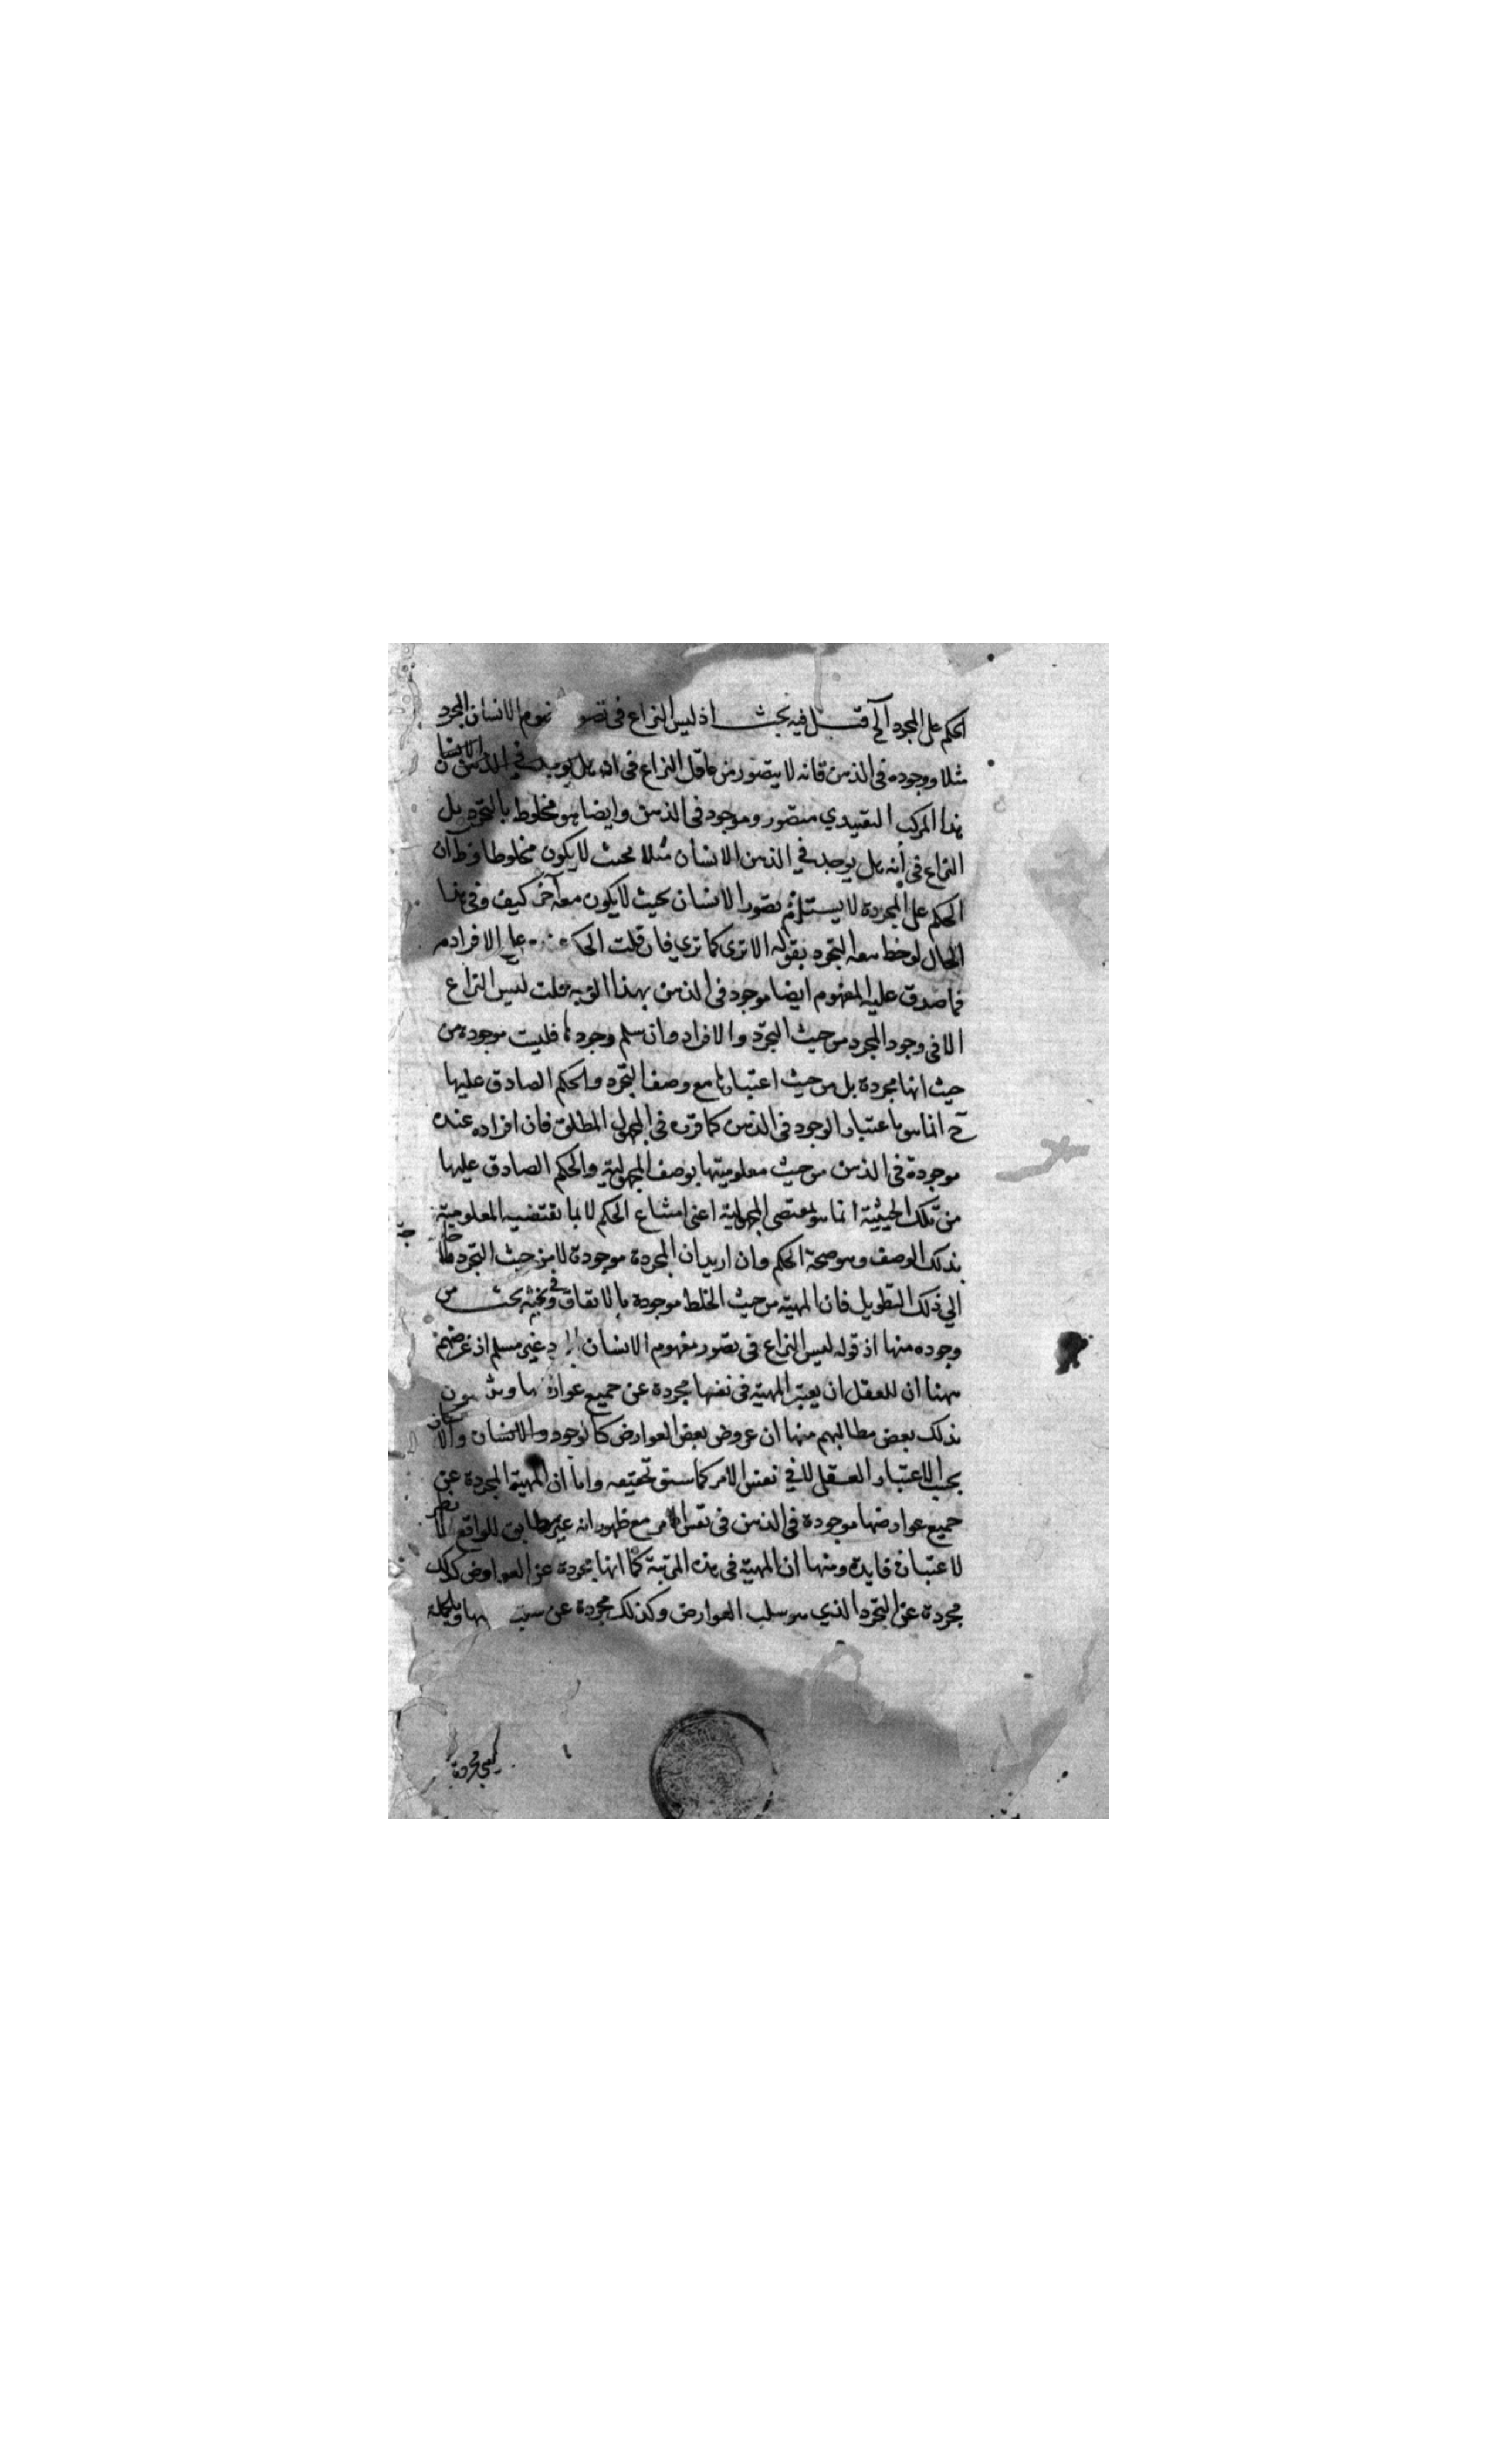 الحكم على المجرد آلخ قيل فيه بحث اذ ليس النزاع في تصو هوم الانسان المجرد
مثلا ووجوده في الذهن فانه لا يتصور من عاقل النزاع في انه هل يوجد في الذهن الانسان
هذا المركب التقييدي متصور وموجود في الذهن وايضا هو مخلوط بالتجرد بل
النزاع في أنه هل يوجد في الذهن الانسان مثلا بحيث لا يكون مخلوطا وظ آن
الحكم على المجردة لا يستلزم تصور الانسان بحيث لا يكون معه آخر كيف وفي هذا
الحال لوحظ معه التجرد بقوله الا ترى كما ترى فان قلت الحكم على الافراد
فما صدق عليه المفهوم ايضا موجود في الذهن بهذا الوجه قلت ليس النزاع
الا في وجود المجرد من حيث التجرد والافراد وان سلم وجودها فليست موجودة من
حيث انها مجردة بل من حيث اعتبارها مع وصف التجرد والحكم الصادق عليها
ح انما هو باعتبار الوجود في الذهن كما قرره في المجهول المطلق فان افراده عنده
موجودة في الذهن من حيث معلوميتها بوصف المجهولية والحكم الصادق عليها
من تلك الحيثية انما هو بمقتضى المجهولية اعني امتناع الحكم لا بما تقتضيه المعلومية
بذلك الوصف وهو صحة الحكم وان اريد ان المجردة موجودة لا من حيث التجرد فلا حاجة
الي ذلك التطويل فان المهية من حيث الخلط موجودة بالاتفاق وفي بحثه بحث من
وجوه منها اذ قوله ليس النزاع في تصور مفهوم الانسان المجرد غير مسلم اذ غرضهم
ههنا ان للعقل ان يعتبر المهية في نفسها مجردة عن جميع عوارضها
بذلك بعض مطالبهم منها ان عروض بعض العوارض كالوجود والانسان
بحسب الاعتبار العقلي لا في نفس الامر كما سبق تحقيقه واما ان المهية المجردة عن
جميع عوارضها موجودة في الذهن في نفس الامر مع ظهور انه غير مطابق للواقع لا يظهر
لاعتباره فايدة ومنها ان المهية في هذه المرتبة كما انها مجردة عن العوارض كذلك
مجردة عن التجرد الذي هو سلب العوارض وكذلك مجردة عن وبالجملة
مجردة